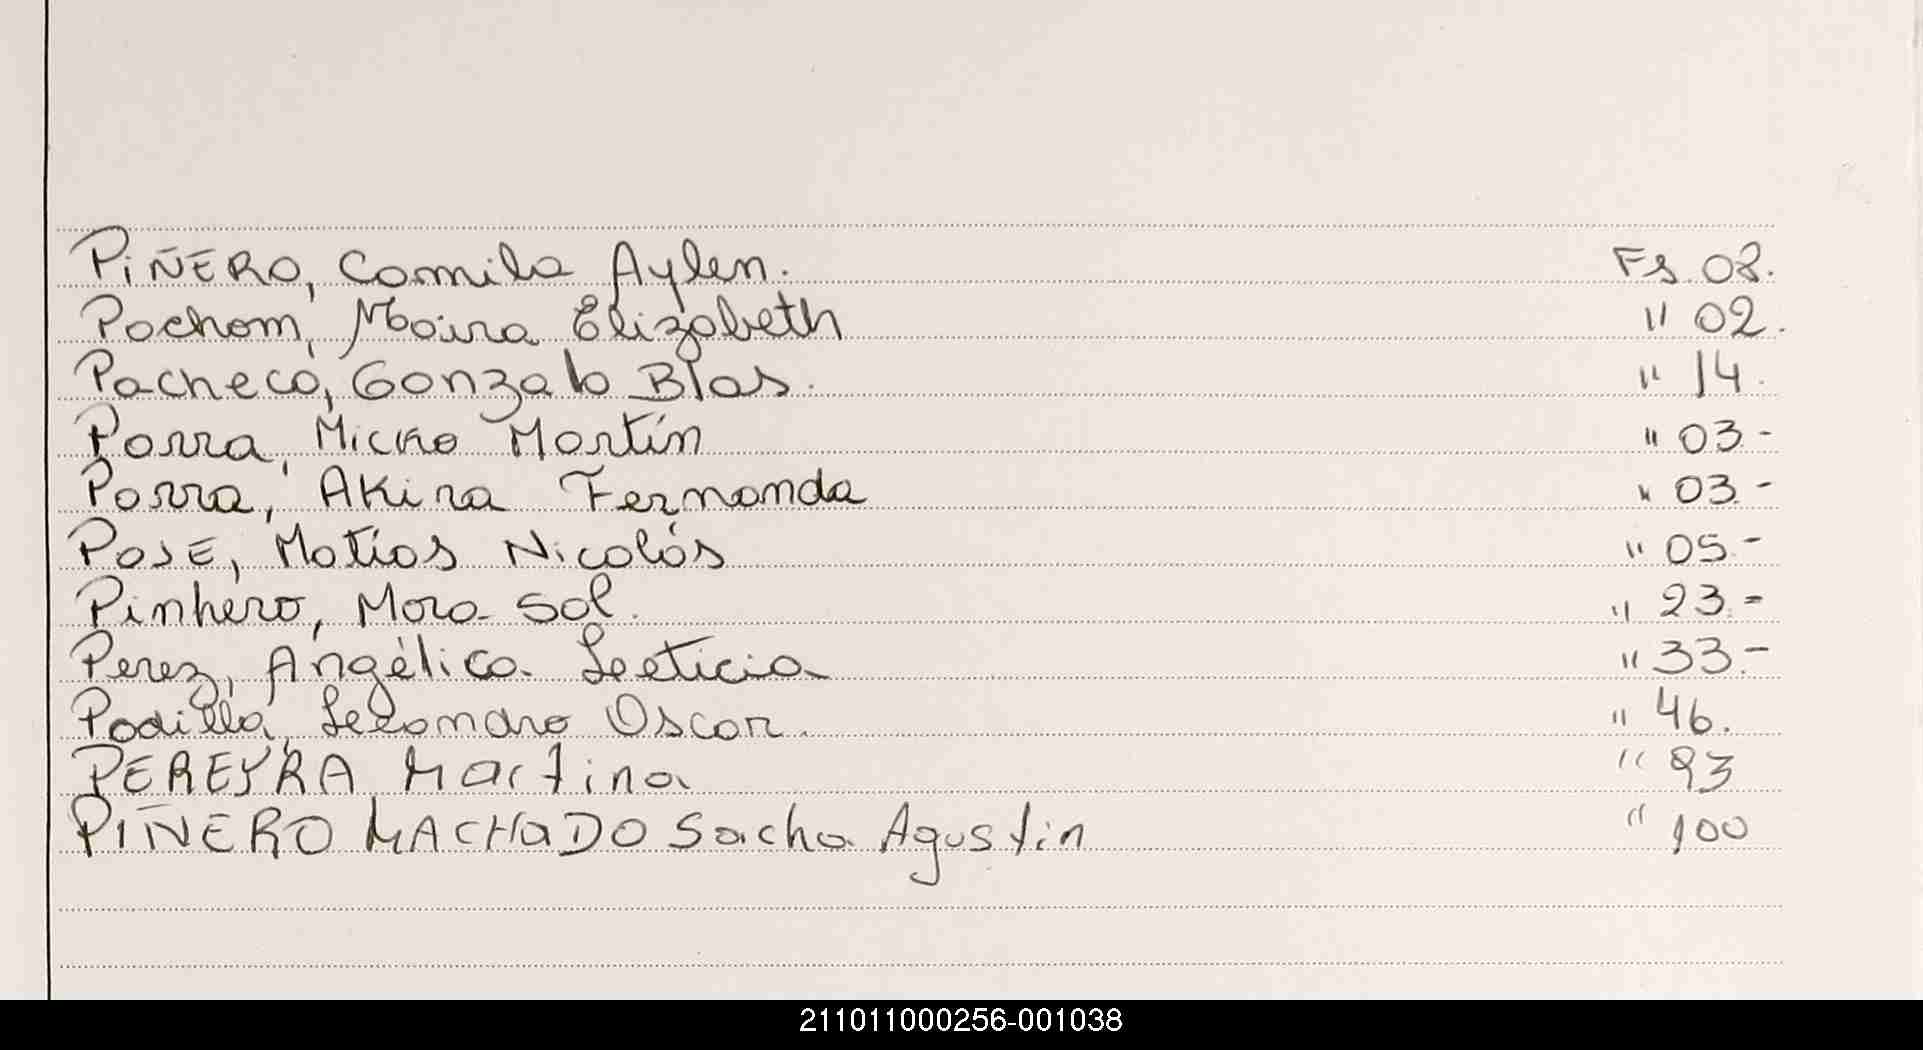 PIÑERO, Camila Aylen. Fs. 08.
Pacham, Maira Elizabeth " 02.
Pacheco, Gonzalo Blas. " 14.
Parra, Mirko Martín " 03.-
Parra, Akira Fernanda " 03.-
POSE, Matías Nicolás " 05.-
Pinhero, Mora Sol. " 23.-
Perez, Angélica Leeticia " 33.-
Padilla, Lesandro Oscar. " 46.
PEREYRA, Martina " 93
PIÑERO MACHADO Sacha Agustin " 100
211011000256-001038